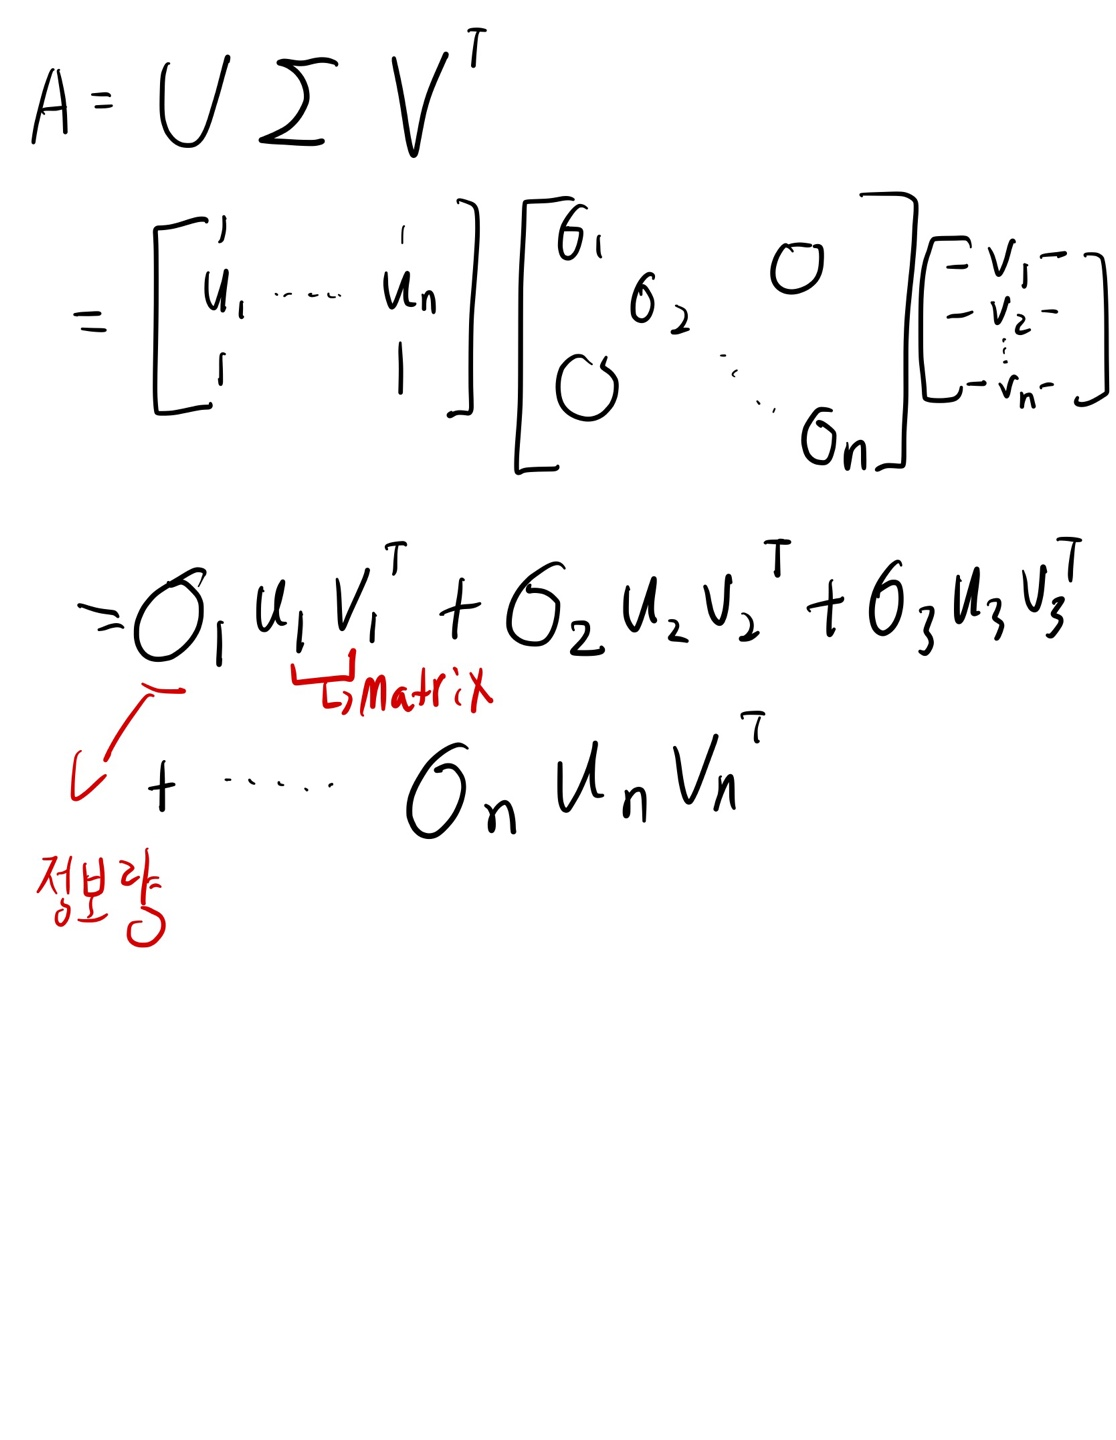 A = U Σ V^T
= [ u₁ ····· uₙ ] [ σ₁ σ₂ ⋱ σₙ 0 0 ] [ = v₁ - - v₂ - ⋮ - vₙ - ]
= σ₁ u₁ v₁^T + σ₂ u₂ v₂^T + σ₃ u₃ v₃^T
↳ matrix
+ ····· σₙ uₙ vₙ^T
정보량